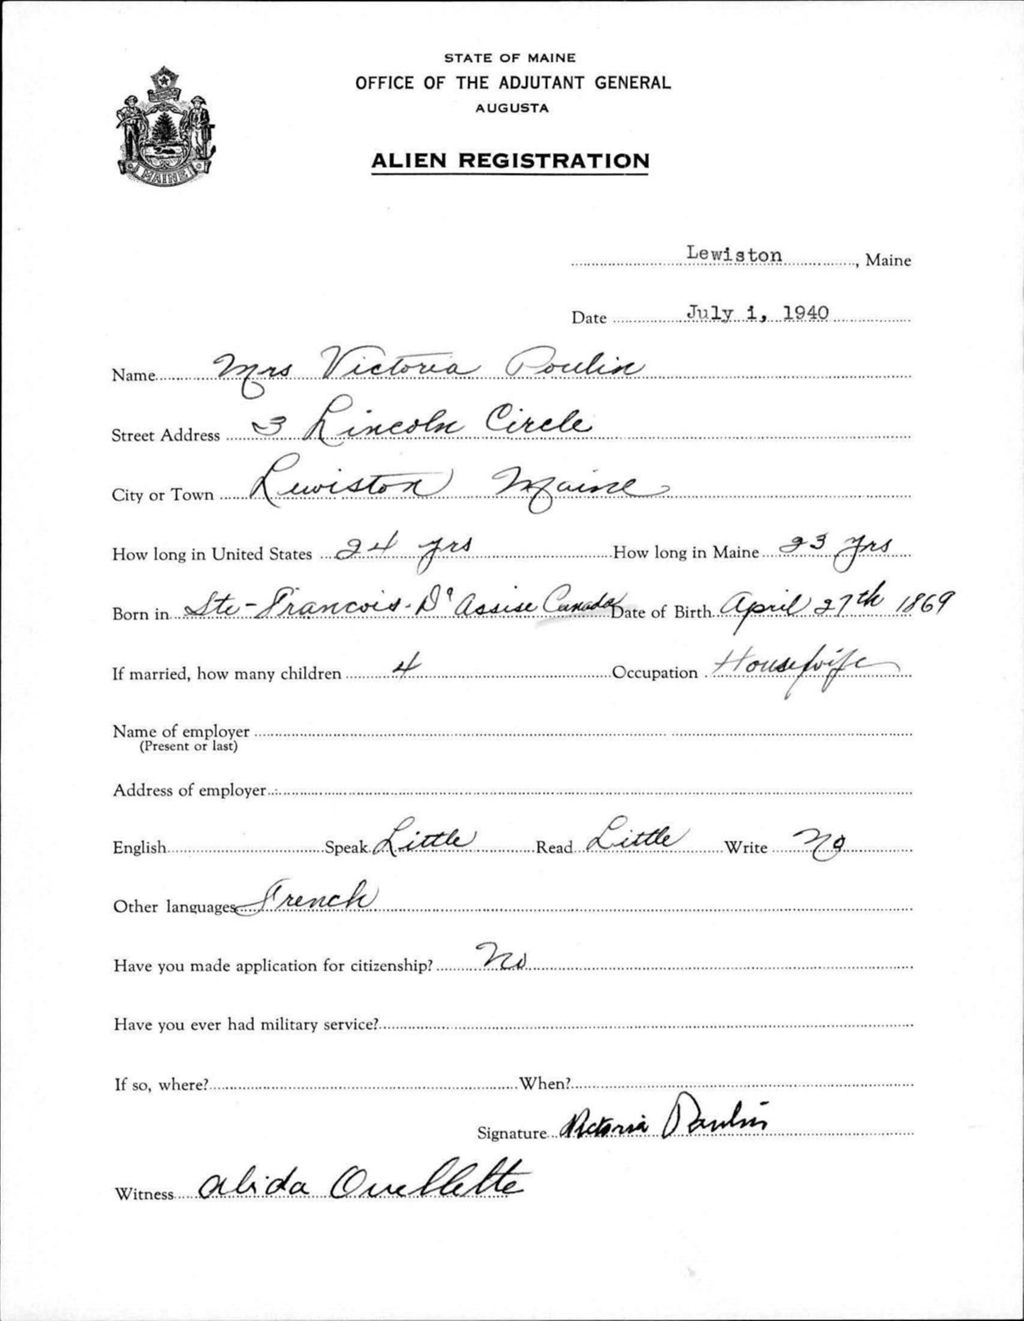 STATE OF MAINE
OFFICE OF THE ADJUTANT GENERAL
AUGUSTA
ALIEN REGISTRATION
MAINE
Lewiston, Maine
Date July 1, 1940
Name Mrs Victoria Poulin
Street Address 3 Lincoln Circle
City or Town Lewiston Maine
How long in United States 24 yrs How long in Maine 23 yrs
Born in Ste-Francois-D'Assise Canada Date of Birth April 27th 1869
If married, how many children 4 Occupation Housewife
Name of employer
(Present or last)
Address of employer
English Speak Little Read Little Write No
Other languages French
Have you made application for citizenship? No
Have you ever had military service?
If so, where? When?
Signature Victoria Poulin
Witness Alida Ouellette